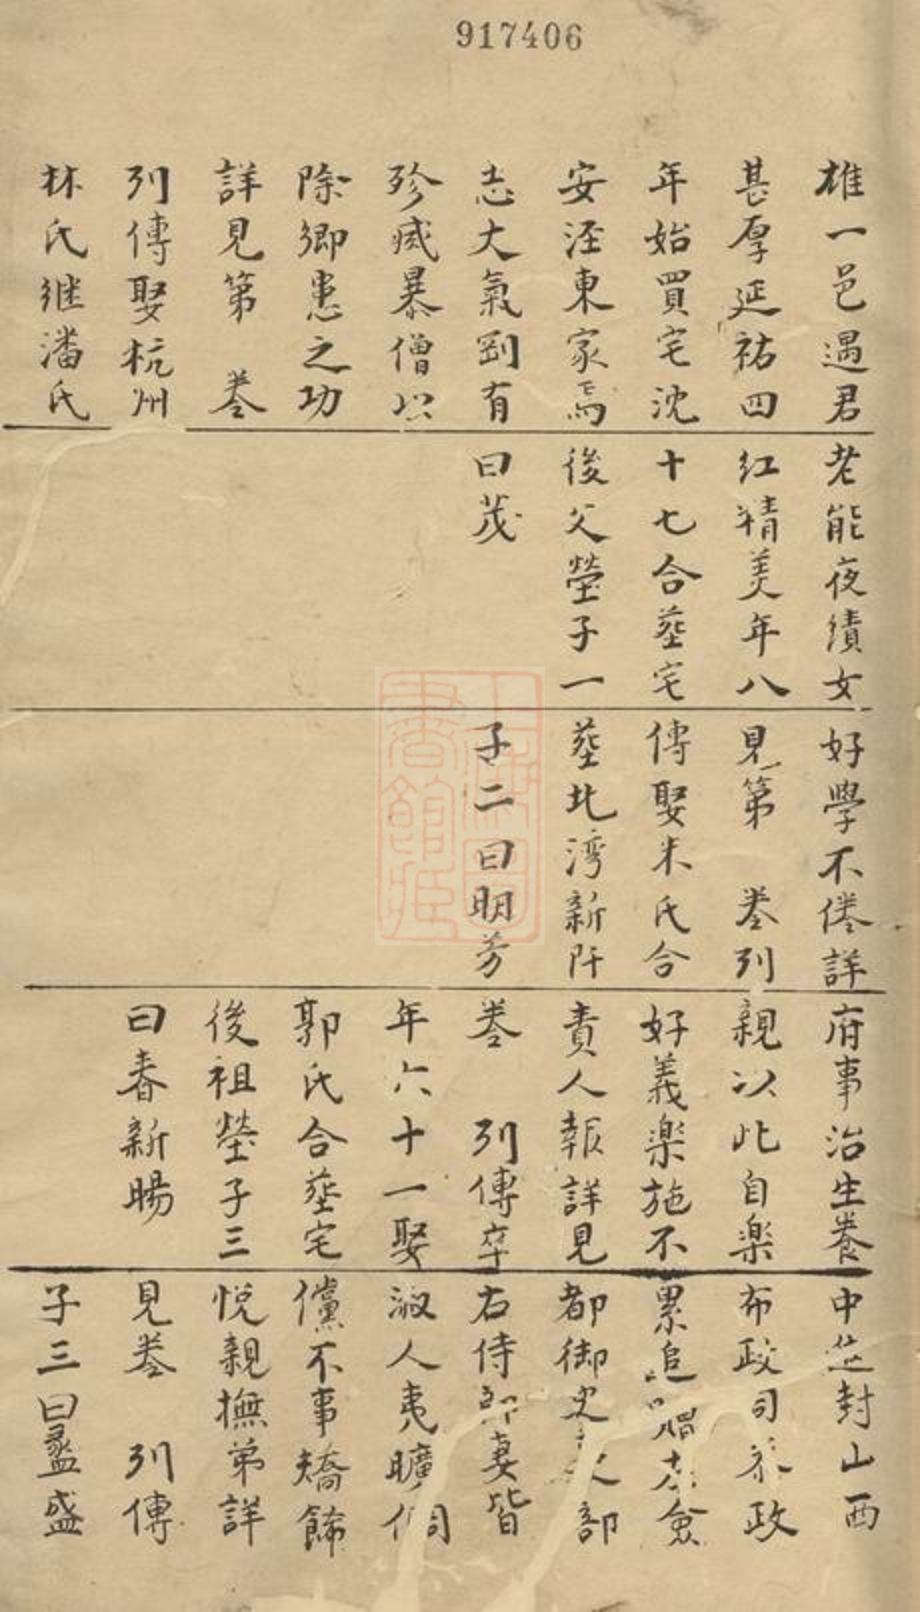 917406
雄一邑遇君
甚厚延祐四
年始買宅沈
安涇東家焉
志大氣剛有
殄㓕暴僧以
除鄉患之功
詳見第 卷
列傳娶杭州
林氏继潘氏
老能夜績女
红精美年八
十七合葬宅
後父塋子一
曰茂
好學不倦詳
見第 卷列
傳娶朱氏合
葬北湾新阡
子二曰明芳
府事治生養
親以此自楽
好義楽施不
責人報詳見
卷 列傳卒
年六十一娶
郭氏合葬宅
後祖塋子三
曰春新暘
封山西
布政司 政
累追贈 僉
都御史 部
右侍郎妻皆
淑人夷曠倜
儻不事矯餙
悅親撫弟詳
見卷 列傳
子三曰盈盛
上海圖書館藏